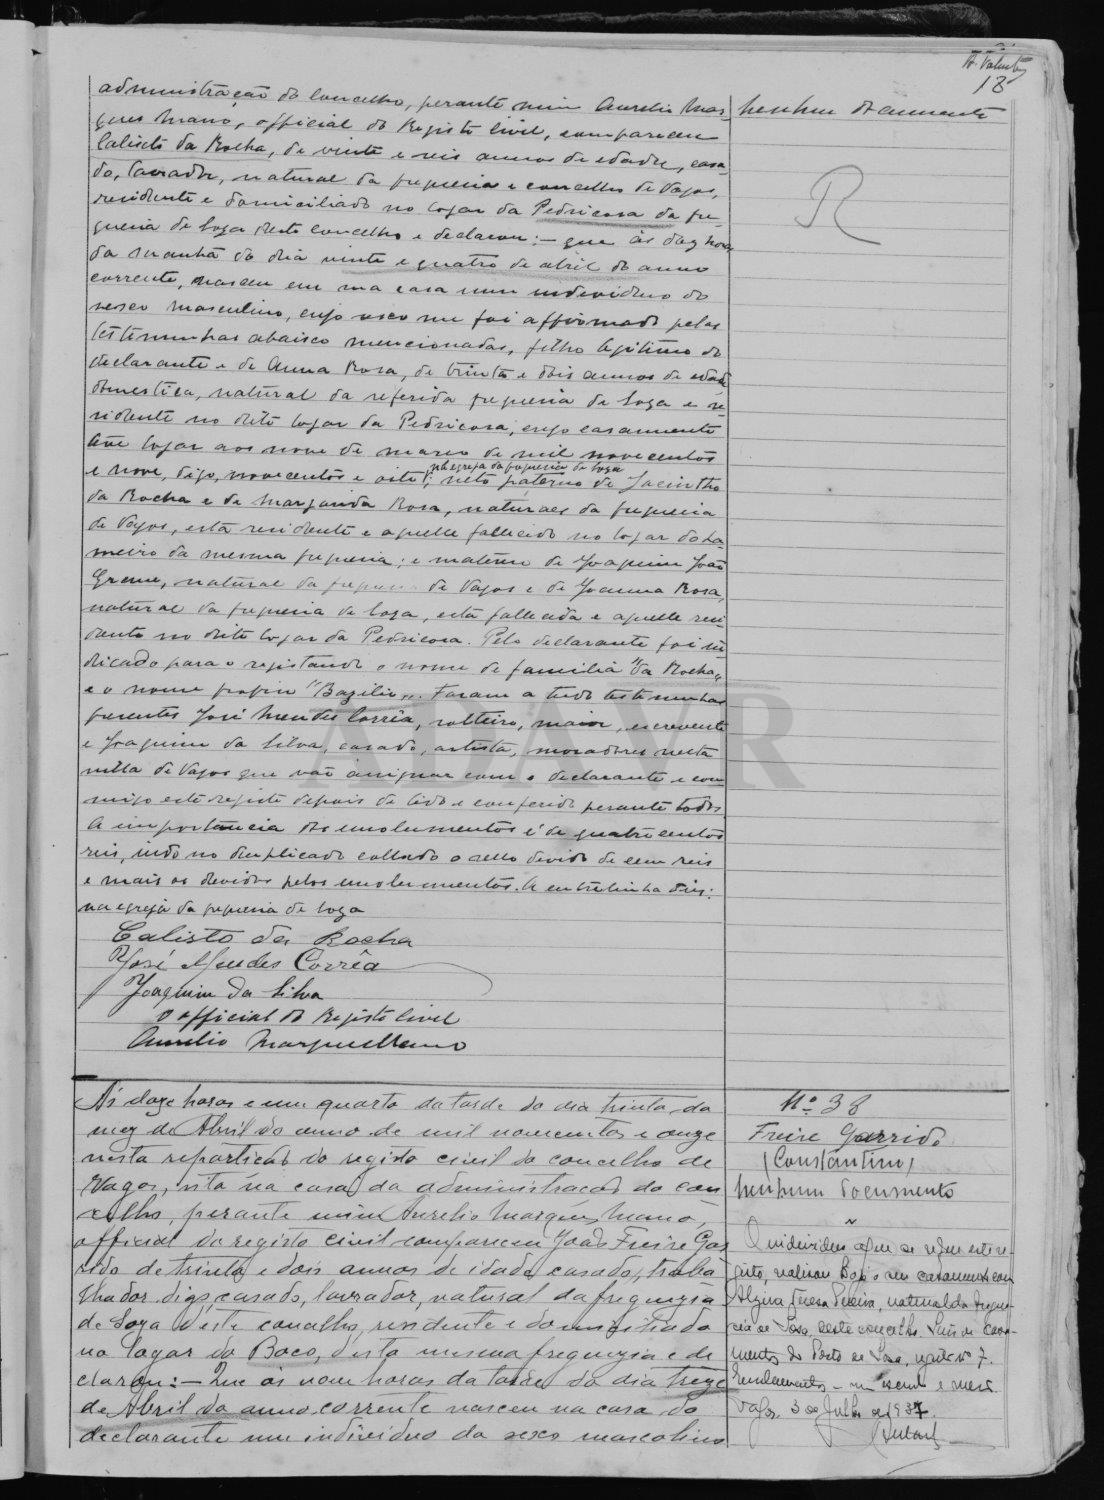 18
administração do concelho, perante mim Aurelio Mar-
ques Mano, official do Registo Civil, compareceu
Calisto da Rocha, de vinte e seis annos de edade, casa-
do, lavrador, natural da freguesia e concelho de Vagos,
residente e domiciliado no logar da Pedricosa da fre-
guesia de Soza deste concelho e declarou: - que ás dez horas
da manhã do dia vinte e quatro de abril do anno
corrente, nasceu em sua casa num individuo do
sexo masculino, cujo sexo me foi affirmado pelas
testemunhas abaixo mencionadas, filho legitimo do
declarante e de Anna Rosa, de trinta e dois annos de edade
domestica, natural da referida freguesia de Soza e re-
sidente no dito logar da Pedricosa, cujo casamento
teve logar aos nove de março de mil novecentos
na egreja da freguesia de Soza
e nove, digo, novecentos e oito; neto paterno de Jacintho
da Rocha e de Margarida Rosa, naturaes da freguesia
de Vagos, esta residente e aquelle fallecido no logar do La-
meiro da mesma freguesia; e materno de Joaquim João
Greme, natural da freguesia de Vagos e de Joanna Rosa,
natural da freguesia de Soza, esta fallecida e aquelle resi-
dente no dito logar da Pedricosa. Pelo declarante foi in-
dicado para o registando o nome de familia "da Rocha"
e o nome proprio "Bazilio". Foram a tudo testemunhas
presentes José Mendes Corrêa, solteiro, maior, escrevente
e Joaquim da Silva, casado, artista, moradores nesta
villa de Vagos que vão assignar com o declarante e com-
migo este registo depois de lido e conferido perante todos.
A importancia dos emolumentos é de quatrocentos
reis, indo no duplicado collado o sello devido de cem reis
e mais os devidos pelos emolumentos. A entrelinha diz:
na egreja da freguesia de Soza
Calisto da Rocha
José Mendes Corrêa
Joaquim da Silva
O official do Registo Civil
Aurelio Marques Mano
nenhum documento
R
ADAVR
Ás doze horas e um quarto da tarde do dia trinta do
mez de Abril do anno de mil novecentos e onze
nesta repartição do registo civil do concelho de
Vagos, sita na casa da administração do con-
celho, perante mim Aurelio Marques Mano,
official do registo civil compareceu João Freire Gar
rido de trinta e dois annos de idade, casado, traba
lhador digo, casado, lavrador, natural da freguezia
de Soza d'este concelho, residente e domiciliado
no logar do Boco, desta mesma freguezia e de
clarou: - Que ás nove horas da tarde do dia treze
de Abril do anno corrente nasceu na casa do
declarante um individuo do sexo masculino
Nº 38
Freire Garrido
(Constantino)
nenhum documento
O individuo a que se refere este re-
gisto, realisou hoje o seu casamento com
Alzira Teresa Pereira, natural da fregue-
sia de Soza, deste concelho. Livro de Casa-
mentos do Posto de Soza, registo nº 7.
Vagos, 3 de Julho de 1937.